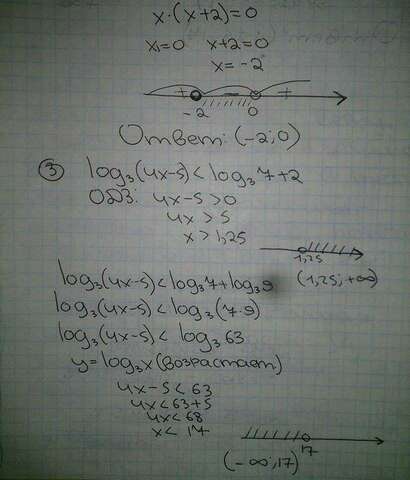 x·(x+2)=0
x₁=0 x+2=0
x=-2
+ - +
-2 0
Ответ: (-2;0)
③ log₃(4x-5)<log₃7+2
ОДЗ: 4x-5>0
4x>5
x>1,25
1,25
log₃(4x-5)<log₃7+log₃9 (1,25;+∞)
log₃(4x-5)<log₃(7·9)
log₃(4x-5)<log₃63
y=log₃x (возрастает)
4x-5<63
4x<63+5
4x<68
x<17
17
(-∞;17)